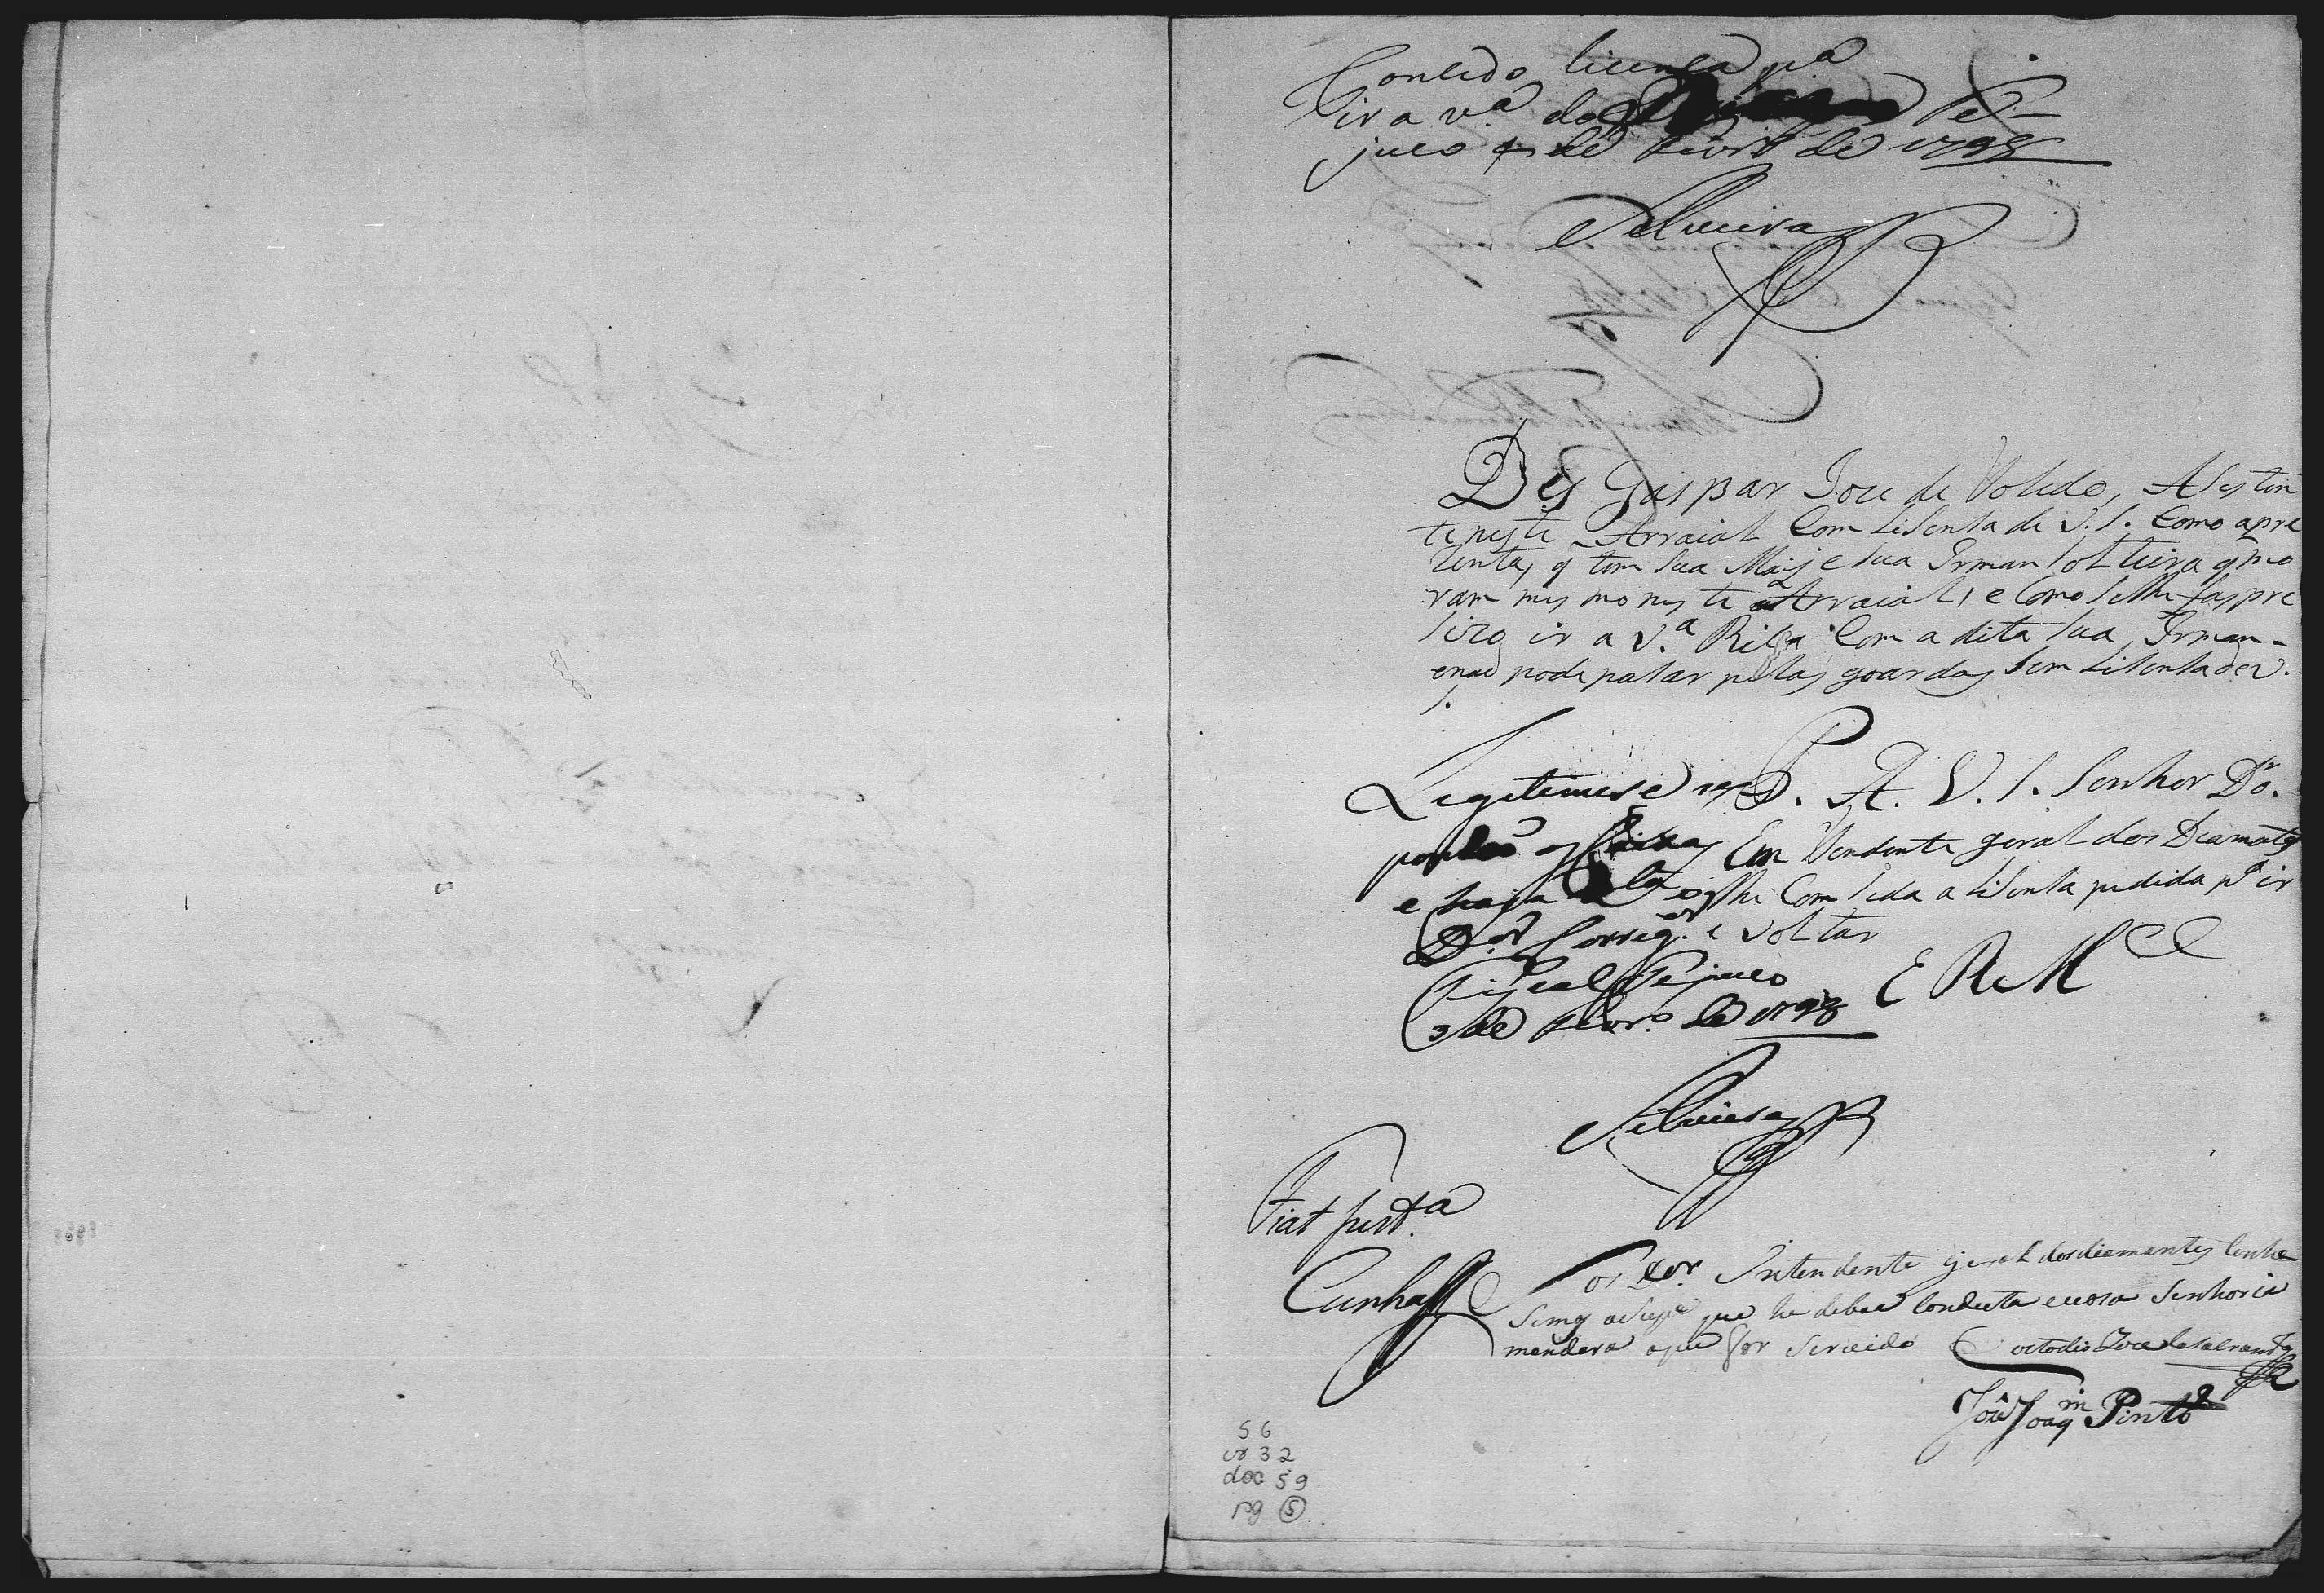 Concedo licença pa
ir a va do Te-
juco 4 de Fevro de 1798
Silveira
Dis Gaspar Joze de Toledo, Asesten
te neste Arraial Com Lisensa de V. S. Como apre
zenta, q tem sua Maj e sua Irman solteira q mo
ram mesmo neste Arraial, e Como se lhe fas pre
sizo ir a V.a Rica Com a dita sua Irman
e nao pode pasar pelas goardas sem Lisensa de V.
S.
P. A V. S. Senhor Dor.
En tendente geral dos Diamates
lhe Com seda a Lisensa pedida pa ir
e voltar
E R Mce
Legitimese
e haja
Dor Correg.or
Fiscal Tejuco
3 de Fevro de 1798
Silveira
Fiat justa.
Cunha
Sor Dor. Intendente geral dos diamantes Conhe
semos que he de boa Conducta e vosa Senhoria
mandara o que for servido Costodio Joze
Joze Joaqm Pinto
56
cx 32
doc 59
pg 5